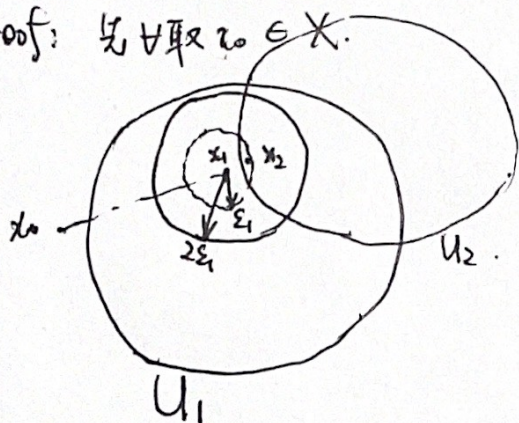 oof: 先∀取x₀ ∈ X.
x₁ x₂
x₀
ε₁
2ε₁
U₂.
U₁